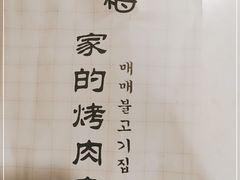 家的烤肉
매매불고기집